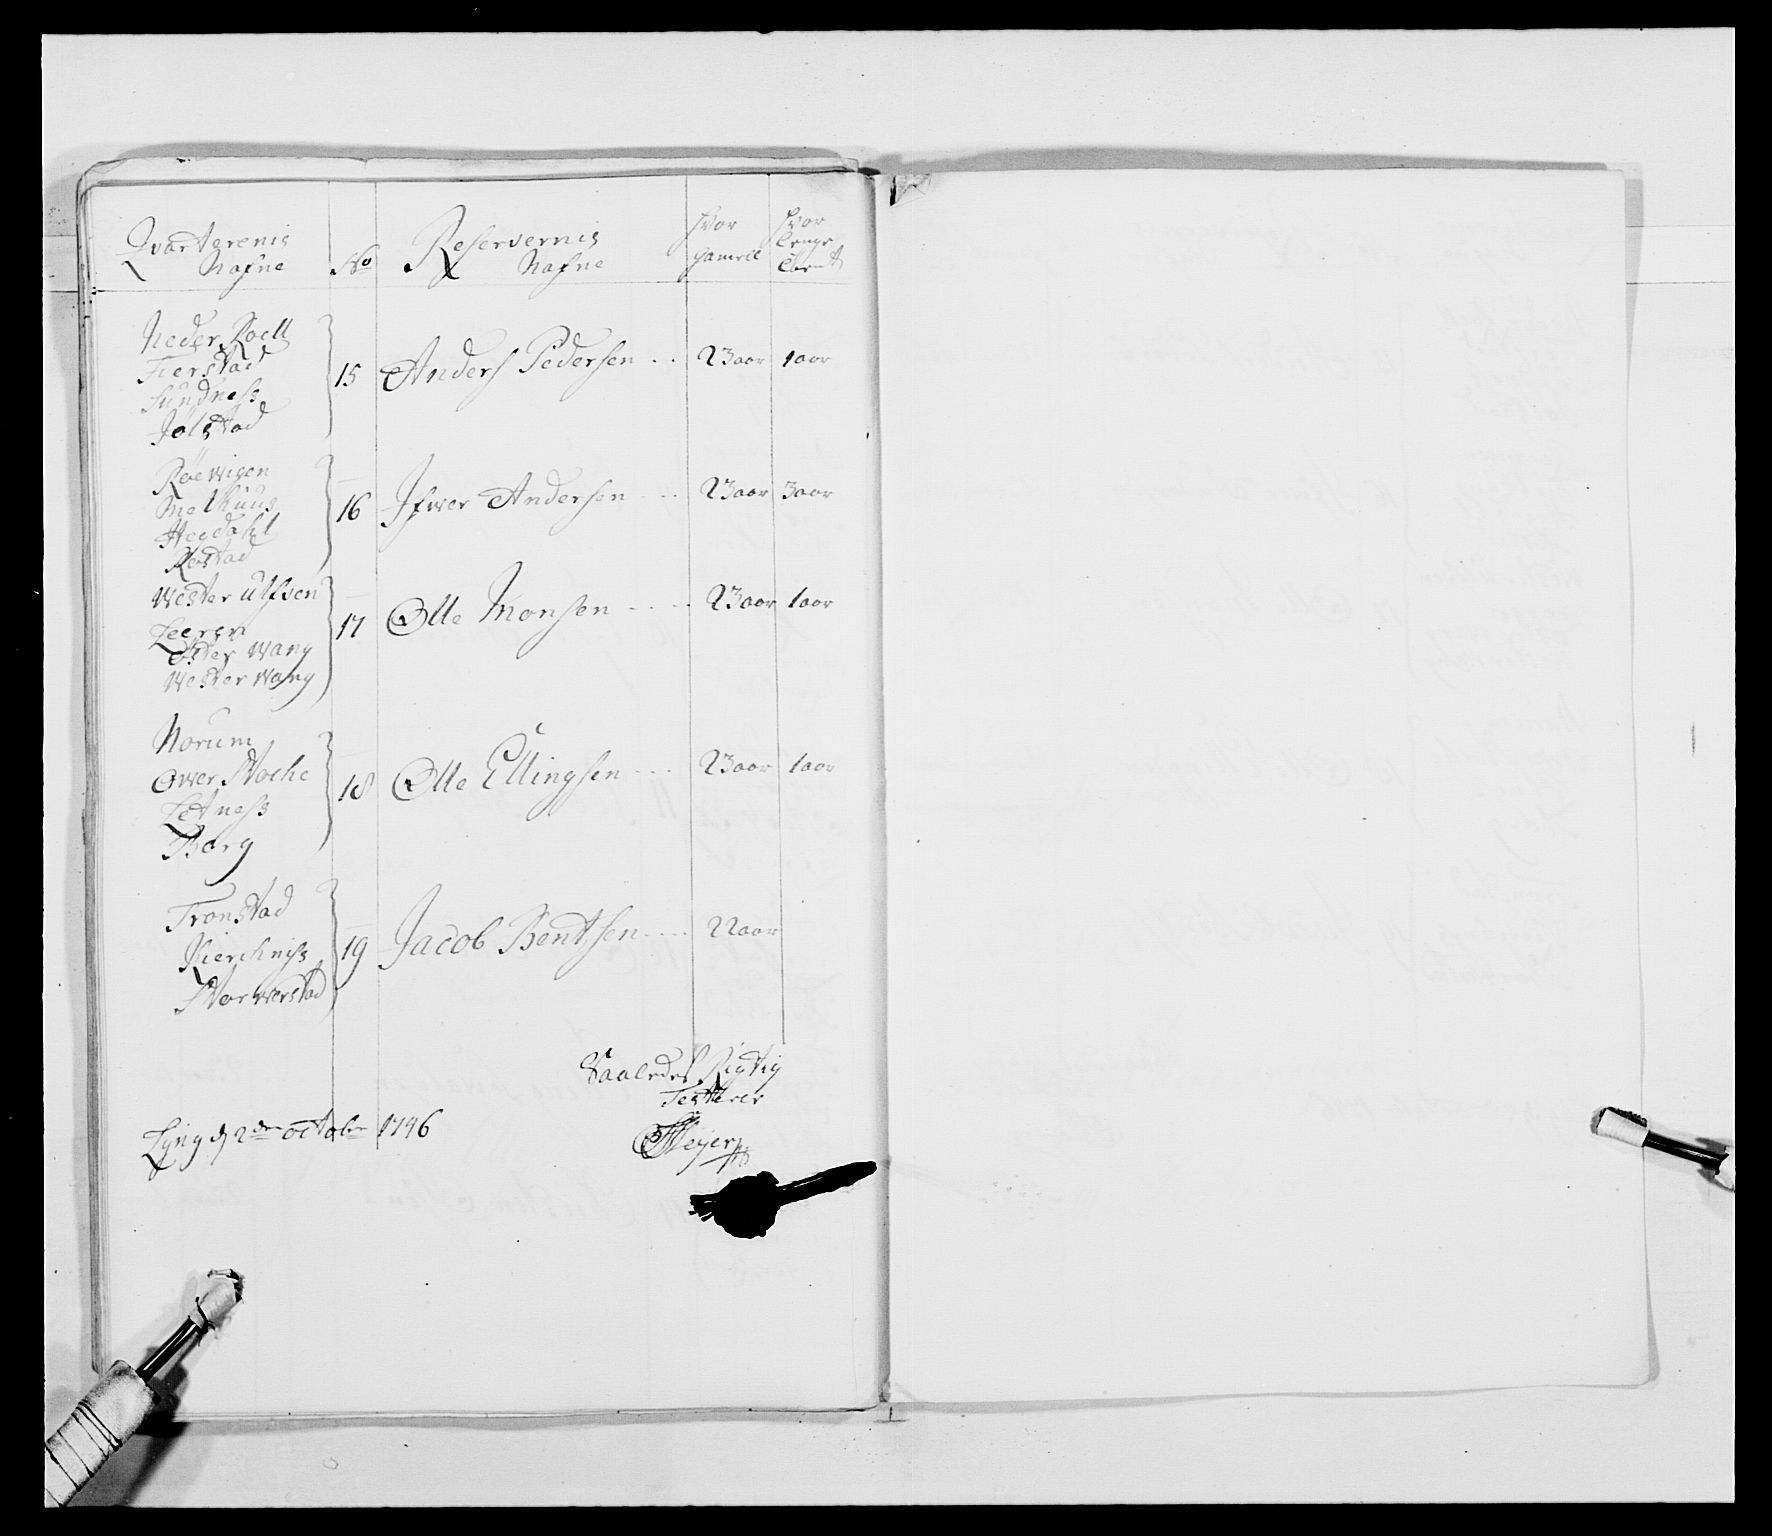 Qvarterenis Nafne No Reservernis Nafne Hvor gameel Hvor lenge tient
Neder Roell
Fierstad
Sundness
Jølstad
15 Anders Pedersen . . 23 aar 1 aar
Røewigen
Melhuus
Hegdahl
Røstad
16 Ifwer Andersen . . . 23 aar 3 aar
Wester Ulfsen
Leeren
Øster Wang
Wester Wang
17 Olle Monsen . . . . 23 aar 1 aar
Norum
Ower Stoche
Letness
Borg
18 Olle Ellingsen . . . 23 aar 1 aar
Tronstad
Kierchniss
Storwerstad
19 Jacob Bentsen . . . . 22 aar
Saaledes Rigtig
Testerer
Lyng d 2den octobr 1746
Meyer